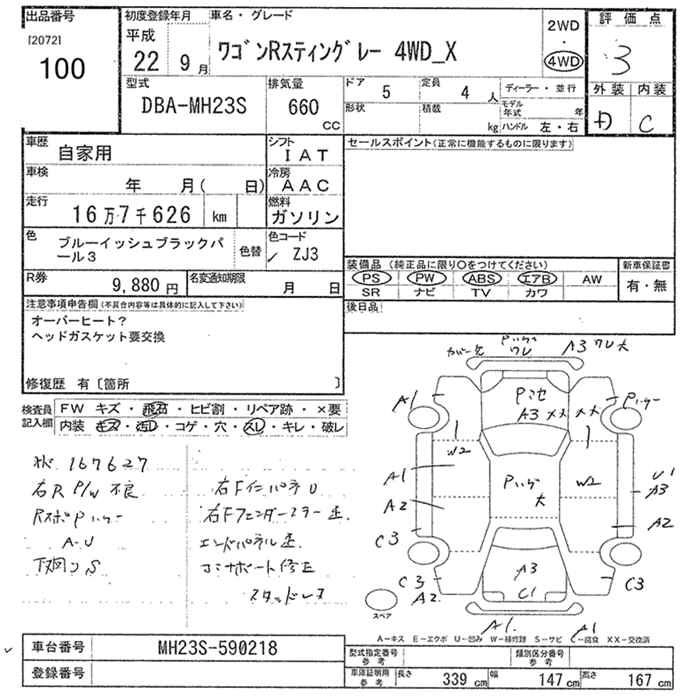 出品番号
[2072]
100
初度登録年月
平成
22 9月
車名・グレード
ワゴンRスティングレー 4WD_X
2WD
・
4WD
評価点
3
外装 内装
D C
型式
DBA-MH23S
排気量
660
CC
ドア
5
定員
4人
形状
積載
kg
ディーラー・並行
モデル年式 年
ハンドル 左・右
車歴
自家用
シフト
IAT
車検
年 月( 日)
冷房
AAC
走行
16万7千626 km
燃料
ガソリン
色
ブルーイッシュブラックパール3
色替
色コード
ZJ3
R券
9,880円
名変通知期限
月 日
セールスポイント(正常に機能するものに限ります)
装備品 (純正品に限り○をつけてください)
PS PW ABS エアB AW
SR ナビ TV カワ
新車保証書
有・無
後日品
注意事項申告欄(不具合内容等は具体的に記入して下さい)
オーバーヒート?
ヘッドガスケット要交換
修復歴 有〔箇所 〕
検査員記入欄
FW キズ・飛石・ヒビ割・リペア跡・×要
内装 キズ・汚レ・コゲ・穴・スレ・キレ・破レ
状 167627
右R P/W 不良
A-U
右Fフェンダーエラー歪
エンドパネル歪
コアサポート修正
スタッドレス
A3 ワレ大
A1
A3 XX XX
W2
W2
A1
A2
C3
U1
A3
A2
C3
A2
C3
A3
C1
A1
スペア
A-キス E-エクボ U-凹み W-補修跡 S-サビ C-腐食 XX-交換済
車台番号
MH23S-590218
登録番号
型式指定番号
参考
類別区分番号
参考
車庫証明用
参考
長さ 339cm 幅 147cm 高さ 167cm